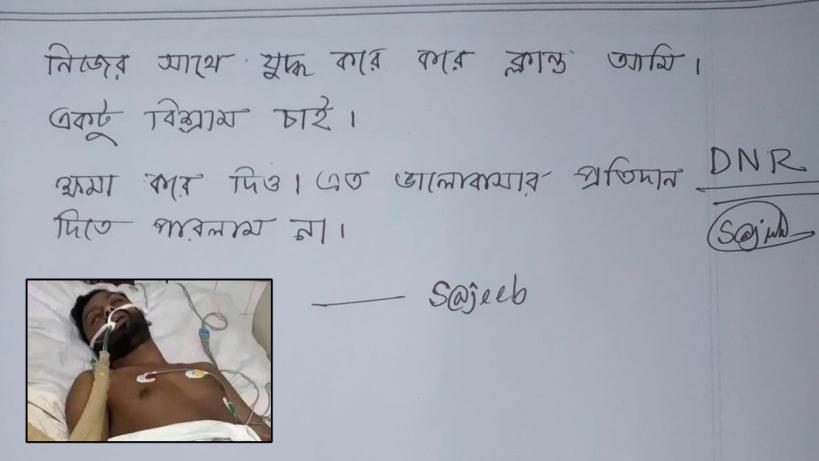 নিজের সাথে যুদ্ধ করে করে ক্লান্ত আমি।
একটু বিশ্রাম চাই।
ক্ষমা করে দিও। এত ভালোবাসার প্রতিদান
দিতে পারলাম না।
DNR
S@jeeb